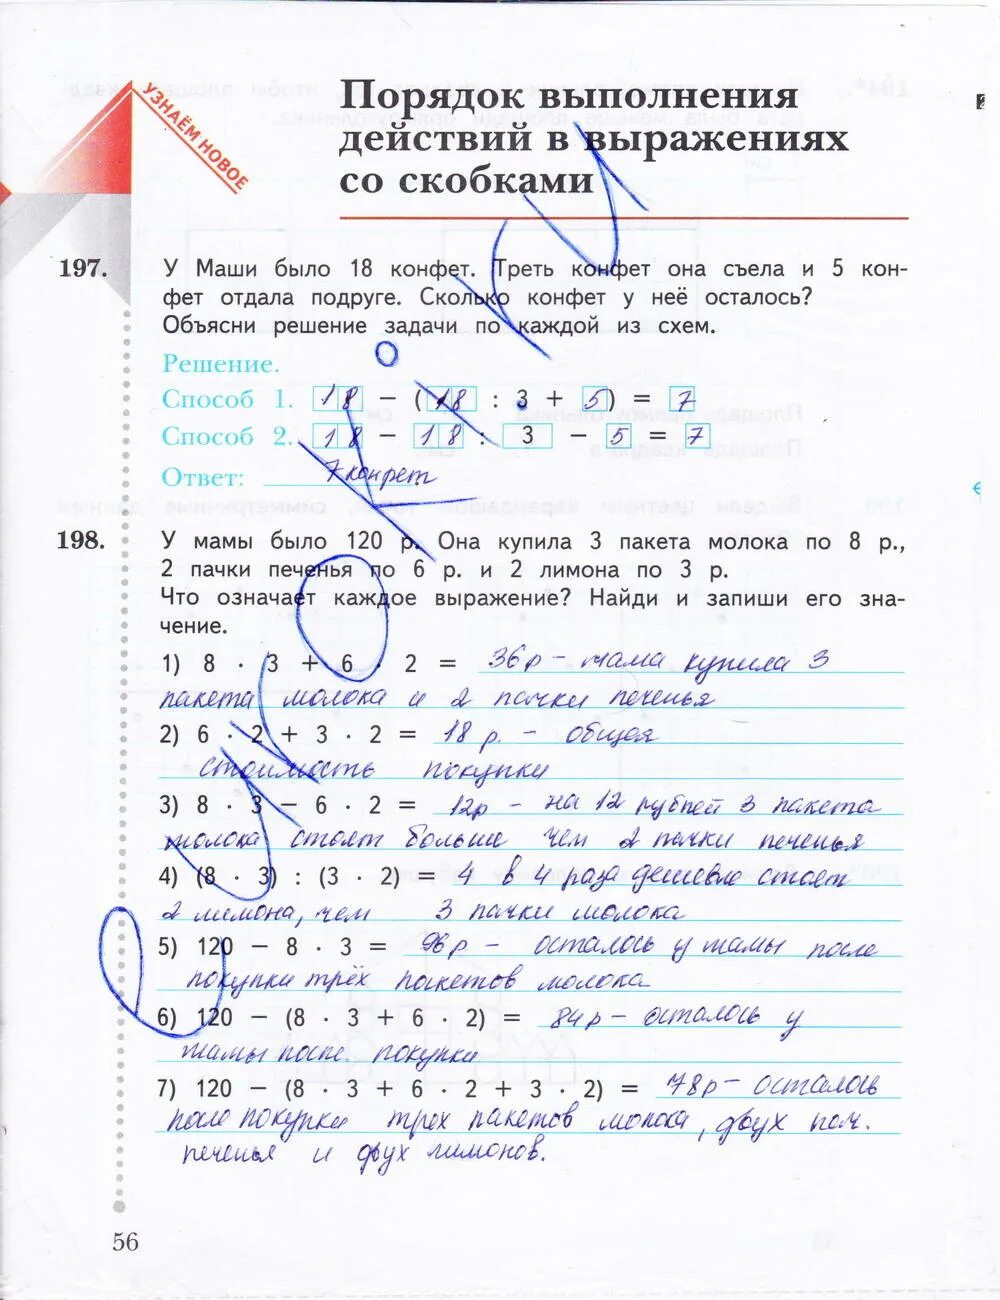 УЗНАЁМ НОВОЕ
Порядок выполнения
действий в выражениях
со скобками
197. У Маши было 18 конфет. Треть конфет она съела и 5 кон-
фет отдала подруге. Сколько конфет у неё осталось?
Объясни решение задачи по каждой из схем.
Решение.
Способ 1. 18 − (18 : 3 + 5) = 7
Способ 2. 18 − 18 : 3 − 5 = 7
Ответ: 7 конфет
198. У мамы было 120 р. Она купила 3 пакета молока по 8 р.,
2 пачки печенья по 6 р. и 2 лимона по 3 р.
Что означает каждое выражение? Найди и запиши его зна-
чение.
1) 8 · 3 + 6 · 2 = 36р – мама купила 3
пакета молока и 2 пачки печенья
2) 6 · 2 + 3 · 2 = 18 р. – общая
стоимость покупки
3) 8 · 3 − 6 · 2 = 12р – на 12 рублей 3 пакета
молока стоят больше чем 2 пачки печенья
4) (8 · 3) : (3 · 2) = 4 в 4 раза дешевле стоят
2 лимона, чем 3 пачки молока
5) 120 − 8 · 3 = 96р – осталось у мамы после
покупки трёх пакетов молока
6) 120 − (8 · 3 + 6 · 2) = 84р – осталось у
мамы после покупки
7) 120 − (8 · 3 + 6 · 2 + 3 · 2) = 78р – осталось
после покупки трёх пакетов молока, двух пач.
печенья и двух лимонов.
56